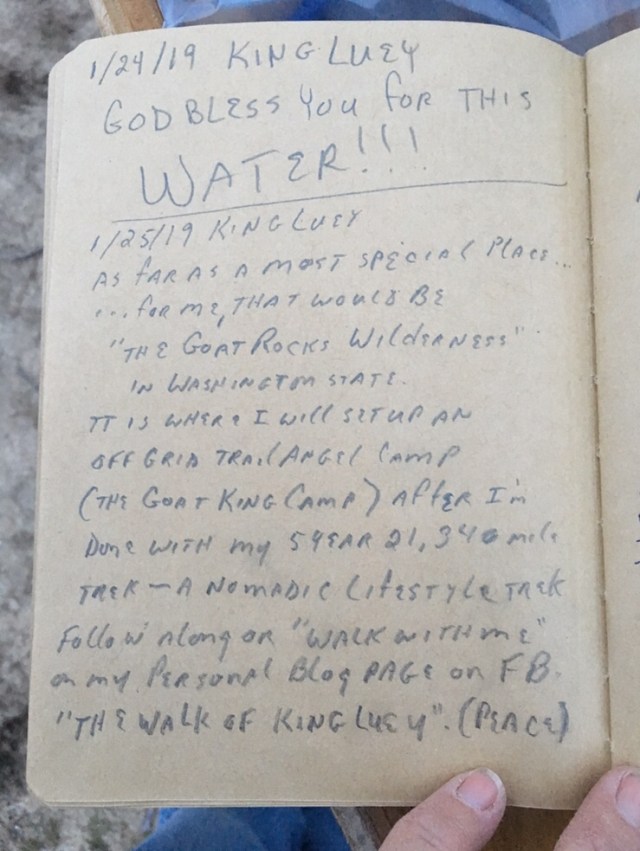 1/24/19 KING LUEY
GOD BLESS YOU FOR THIS
WATER!!!
1/25/19 KING LUEY
AS FAR AS A MOST SPECIAL PLACE...
...FOR ME, THAT WOULD BE
"THE GOAT ROCKS WILDERNESS"
IN WASHINGTON STATE.
IT IS WHERE I WILL SET UP AN
OFF GRID TRAIL ANGEL CAMP
(THE GOAT KING CAMP) AFTER I'm
DONE WITH my 5 YEAR 21,340 mile
TREK - A NOMADIC LIFESTYLE TREK
Follow Along on "WALK WITH ME"
on my PERSONAL Blog PAGE on FB.
"THE WALK OF KING LUEY". (PEACE)